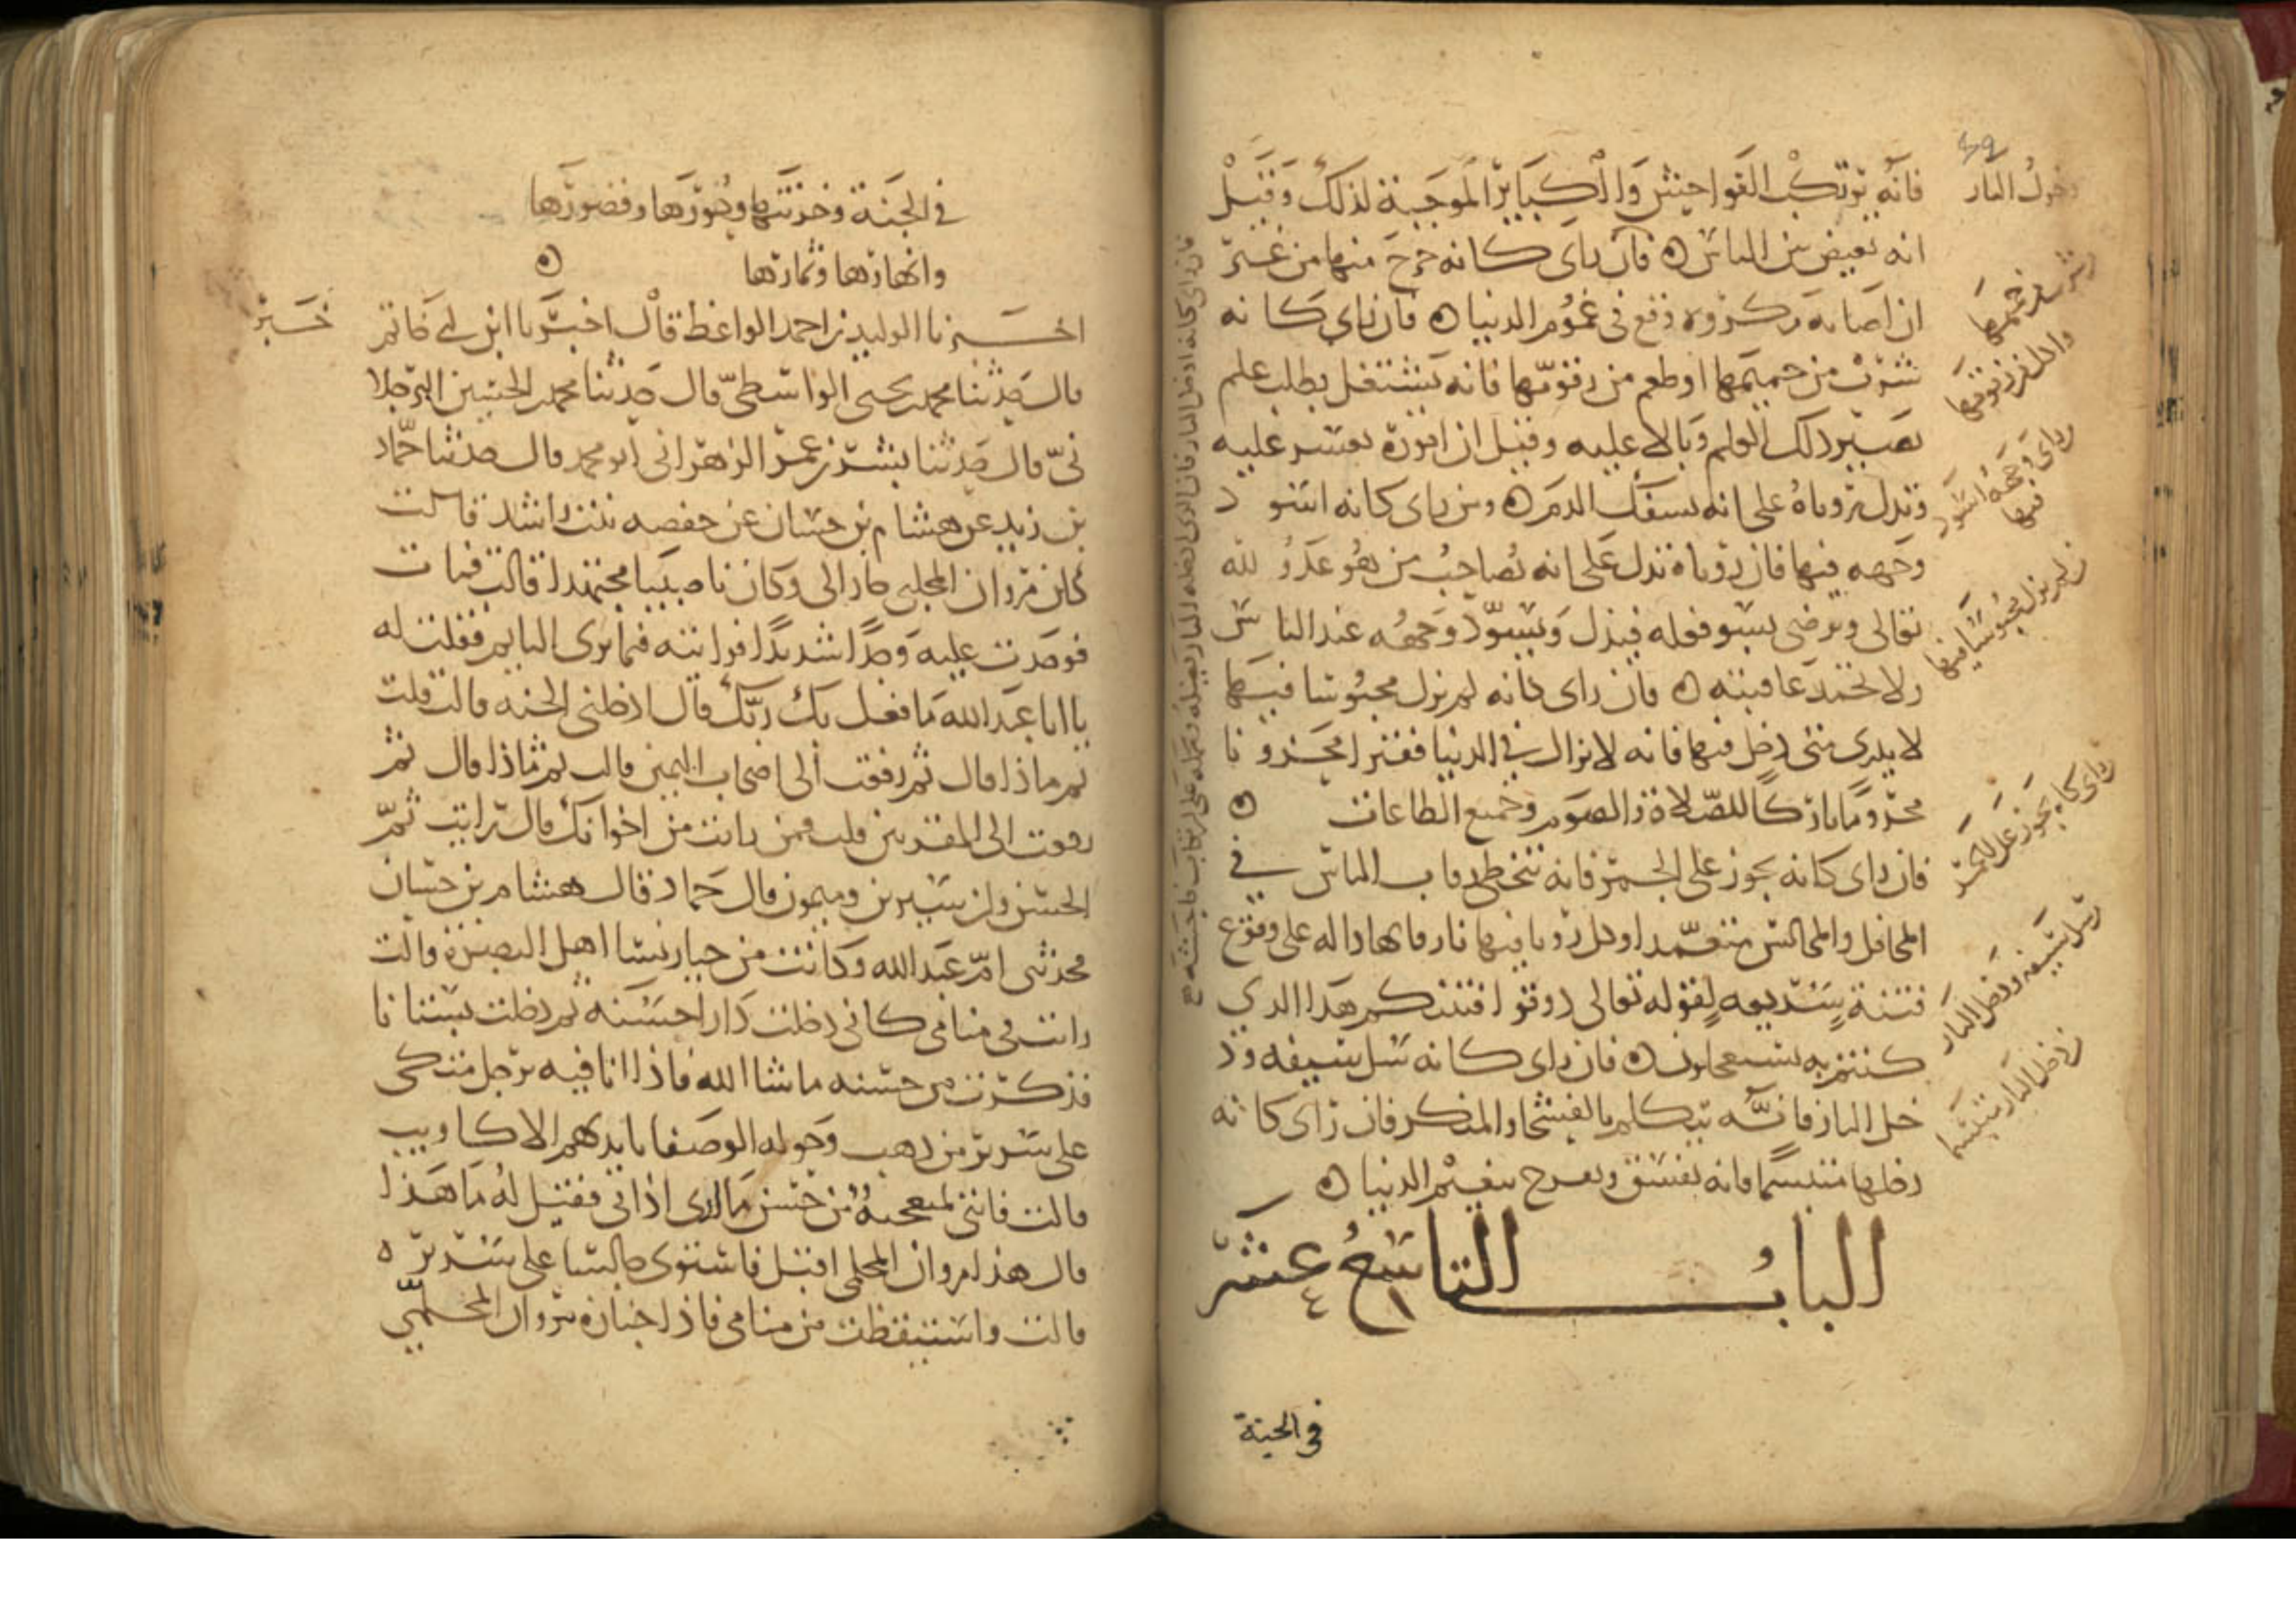 فانه يرتكب الفواحش والكبائر الموجبة لذلك وقيل
انه يعيش بين الناس فان راى كانه خرج منها من غير
ان اصابه مكروه وقع في غموم الدنيا فان راى كانه
شرب من حميمها او طعم من زقومها فانه يشتغل بطلب علم
يصير ذلك العلم وبالا عليه وقيل ان اموره تعسر عليه
وتدل رؤياه على انه يسفك الدم ومن راى كانه اسود
وجهه فيها فان رؤياه تدل على انه يصاحب من هو عدو لله
تعالى ويرضى بسو فعله فيذل ويسود وجهه عند الناس
ولا تحمد عاقبته فان راى كانه لم يزل محبوسا فيها
لا يدرى متى دخل فيها فانه لا يزال في الدنيا فقيرا محزونا
محروما تاركا للصلاة والصوم وجميع الطاعات
فان راى كانه يجوز على الجمر فانه يتخطى رقاب الناس في
المحافل والمجالس متعمدا وكل رؤيا فيها نار فانها دالة على وقوع
فتنة سريعه لقوله تعالى ذوقوا فتنتكم هذا الذي
كنتم به تستعجلون فان راى كانه سل سيفه ود
خل النار فانه يتكلم بالفحشا والمنكر فان راى كانه
دخلها متبسما فانه يفسق ويفرح بنعيم الدنيا
الباب التاسع عشر
في الجنة
دخول النار
راى وجهه اسود
فيها
لم يزل محبوسا فيها
راى كانه يجوز على الجمر
سل سيفه ودخل النار
دخل النار متبسما
في الجنة وخزنتها وحورها وقصورها
وانهارها وثمارها
خبر
اخبرنا الوليد بن احمد الواعظ قال اخبرنا ابن ابي حاتم
قال حدثنا محمد بن يحيى الواسطي قال حدثنا محمد بن الحسين البرجلا
ني قال حدثنا بشر بن عمر الزهراني ابو محمد قال حدثنا حماد
بن زيد عن هشام بن حسان عن حفصه بنت راشد قالت
كان مروان المحلمي جارا لي وكان ناصبا مجتهدا قالت فمات
فوجدت عليه وجدا شديدا فرايته فيما يرى النايم فقلت له
يا ابا عبد الله ما فعل بك ربك قال ادخلني الجنه قالت قلت
ثم ماذا قال ثم رفعت الى اصحاب اليمين قالت ثم ماذا قال ثم
رفعت الى المقربين قلت فمن رايت من اخوانك قال رايت ثم
الحسن وابن سيرين وميمون قال حماد قال هشام بن حسان
فحدثتني ام عبد الله وكانت من خيار نسا اهل البصرة قالت
رايت في منامي كاني دخلت دارا حسنه ثم دخلت بستانا
فذكرت من حسنه ما شا الله فاذا انا فيه برجل متكى
على سرير من ذهب وحوله الوصفا بايديهم الاكاويب
قالت فاني لمتعجبة من حسن ما ارى اذ اتي فقيل له ما هذا
قال هذا مروان المحلمي اقبل فاستوى جالسا على سريره
قالت واستيقظت من منامي فاذا جنازة مروان المحلمي